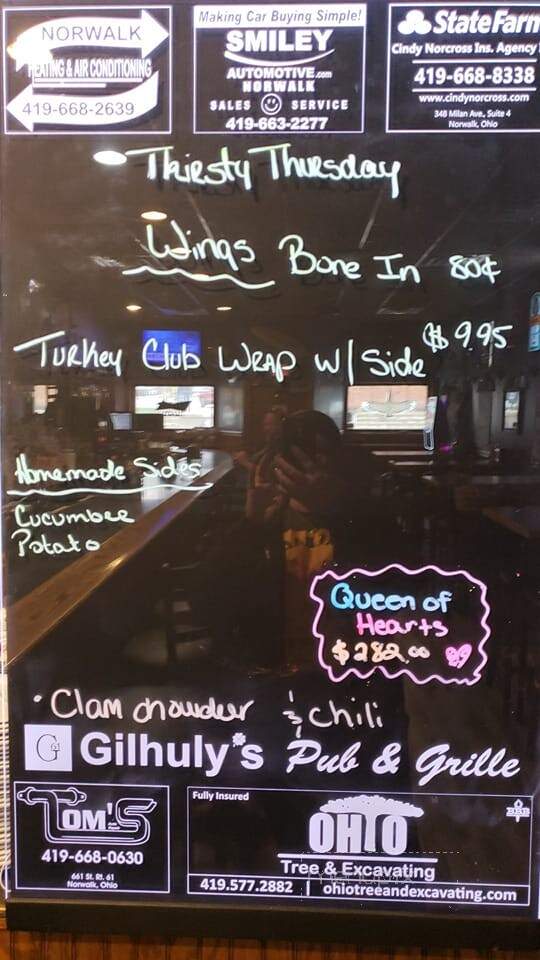 NORWALK
HEATING & AIR CONDITIONING
419-668-2639
Making Car Buying Simple!
SMILEY
AUTOMOTIVE.com
NORWALK
SALES SERVICE
419-663-2277
StateFarm
Cindy Norcross Ins. Agency
419-668-8338
www.cindynorcross.com
348 Milan Ave., Suite 4
Norwalk, Ohio
Thirsty Thursday
Wings Bone In 80¢
Turkey Club Wrap w/ Side $9.95
Homemade Sides
Cucumber
Potato
Queen of
Hearts
$282.00
• Clam chowder & chili
G Gilhuly's Pub & Grille
TOM'S
419-668-0630
661 St. Rt. 61
Norwalk, Ohio
Fully Insured
BBB
OHIO
Tree & Excavating
419.577.2882 | ohiotreeandexcavating.com